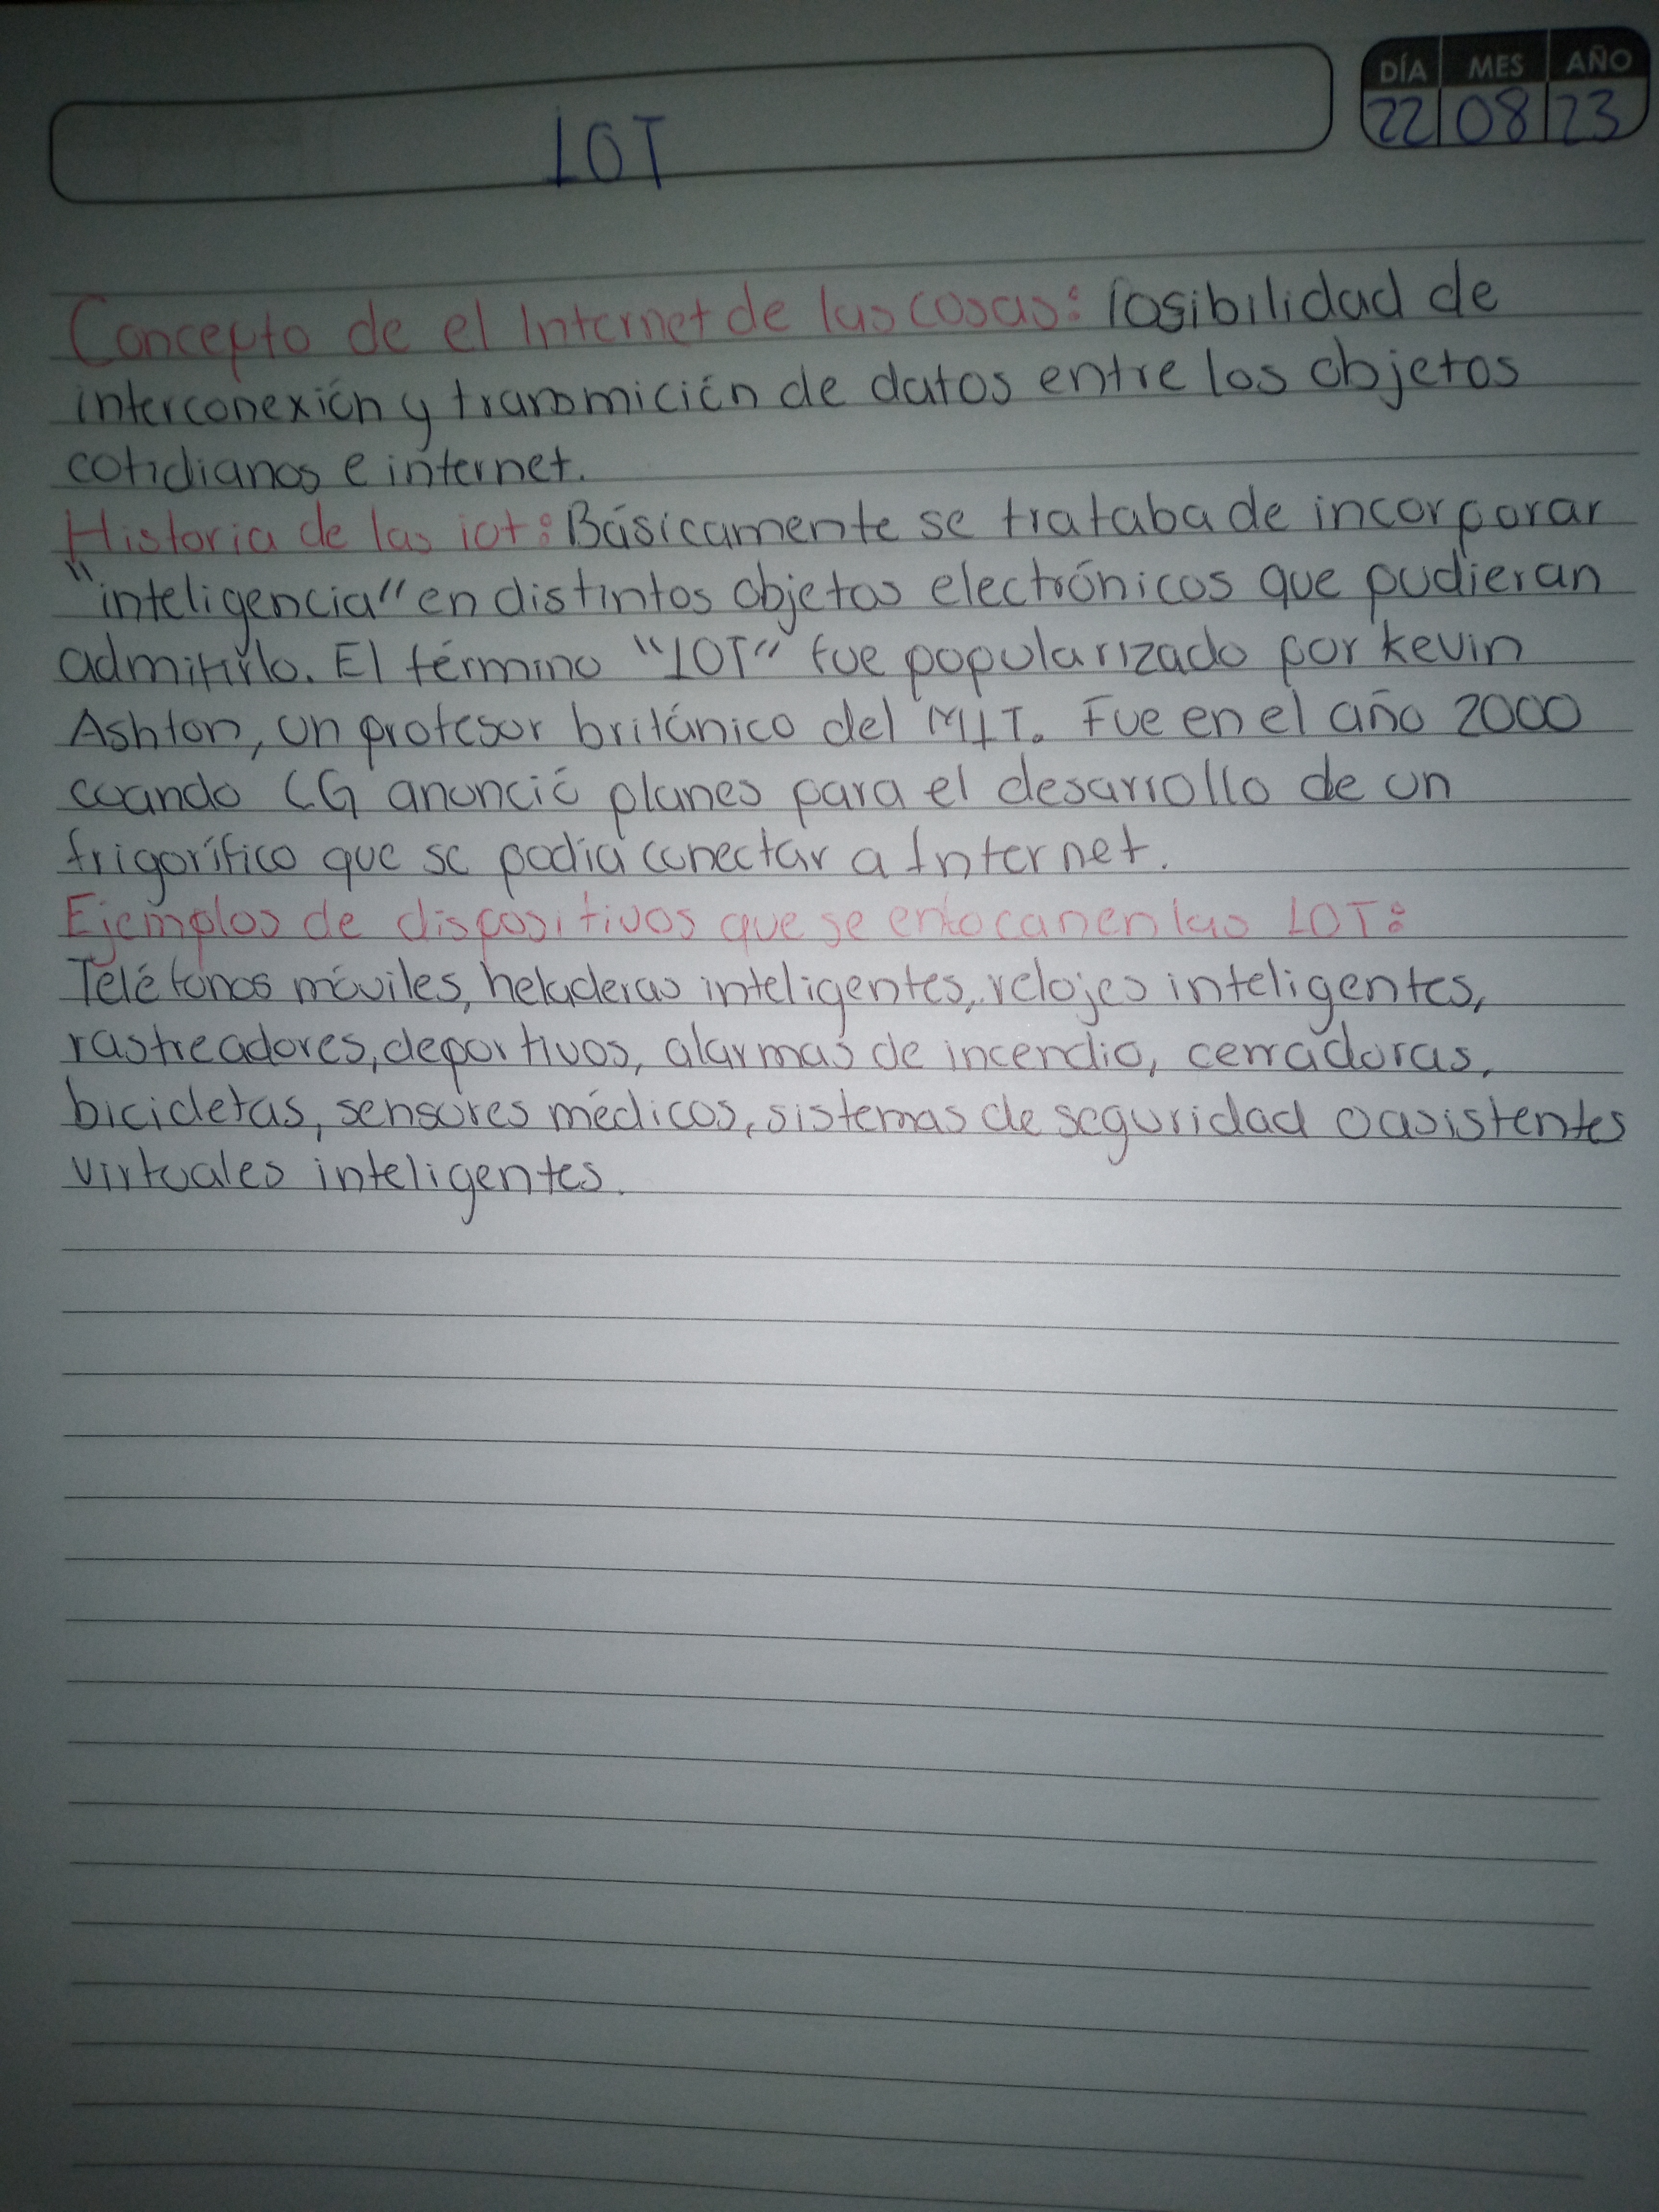 DÍA MES AÑO
22 08 23
IOT
Concepto de el Internet de las cosas: Posibilidad de
interconexión y transmición de datos entre los objetos
cotidianos e internet.
Historia de las iot: Básicamente se trataba de incorporar
"inteligencia" en distintos objetos electrónicos que pudieran
admitirlo. El término "IOT" fue popularizado por Kevin
Ashton, un profesor británico del MIT. Fue en el año 2000
cuando LG anunció planes para el desarrollo de un
frigorífico que se podía conectar a Internet.
Ejemplos de dispositivos que se enfocan en las IOT:
Teléfonos móviles, heladeras inteligentes, relojes inteligentes,
rastreadores, deportivos, alarmas de incendio, cerradoras,
bicicletas, sensores médicos, sistemas de seguridad o asistentes
virtuales inteligentes.